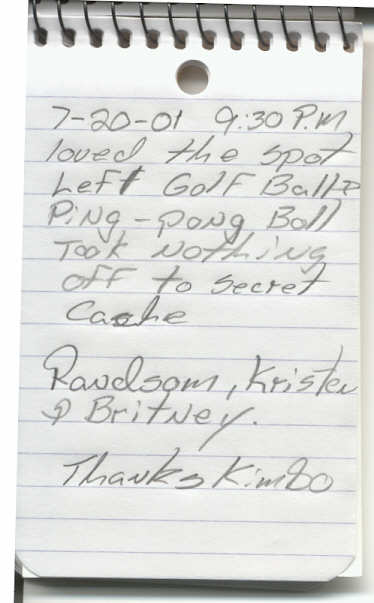 7-20-01 9:30 P.M
loved the spot
Left Golf Ball &
Ping-pong Ball
Took Nothing
off to secret
Cache
Randsom, Kristen
& Britney.
Thanks Kimbo